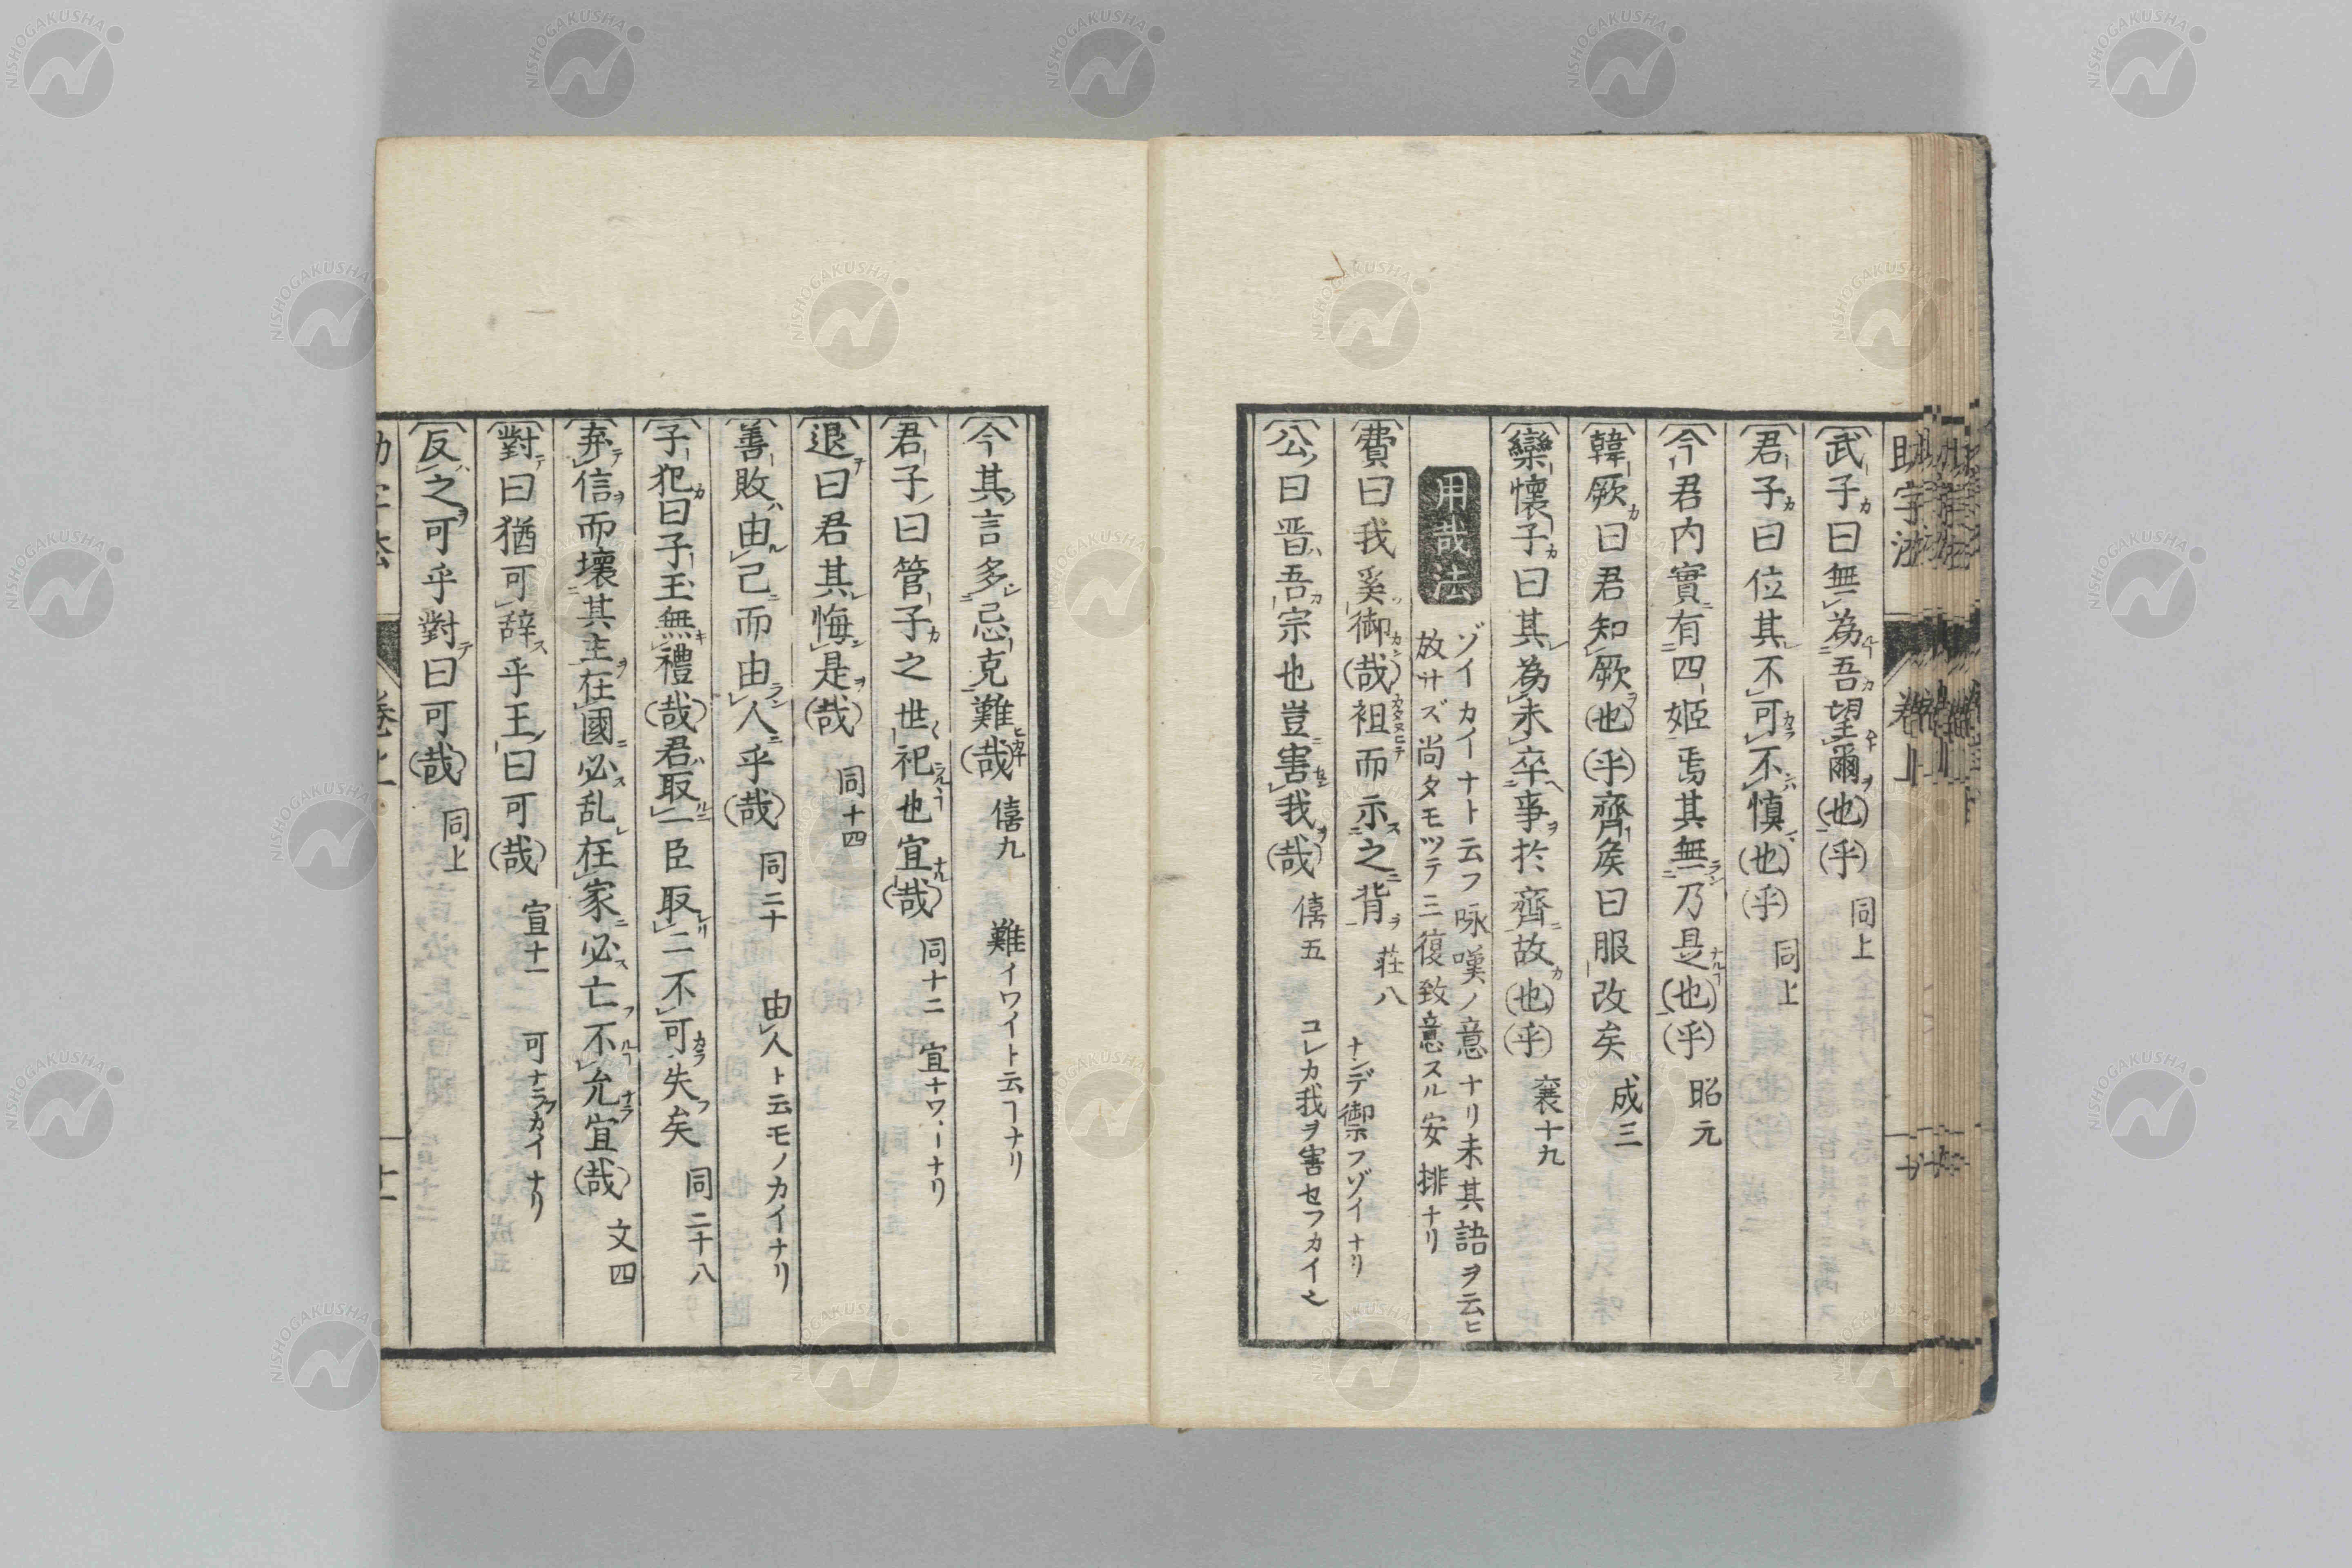 助字法 卷上
武子曰無為吾望爾(也)(乎) 同上
君子曰位其不可不慎(也)(乎) 同上
今君内實有四姬焉其無乃是(也)(乎) 昭元
韓厥曰君知厥(也)(乎)齊矦曰服改矣 成三
欒懷子曰其為未卒事於齊故(也)(乎) 襄十九
用哉法
ゾイカイナト云フ咏嘆ノ意ナリ未其語ヲ云ヒ
放サズ尚タモツテ三復致意スル安排ナリ
費曰我奚御(哉)袒而示之背 莊八 ナンデ禦フゾイナリ
公曰晋吾宗也豈害我(哉) 僖五 コレカ我ヲ害セフカイ
今其言多忌克難(哉) 僖九 難イワイト云ヿナリ
君子曰管子之世祀也宜(哉) 同十二 宜ナワイナリ
退曰君其悔是(哉) 同十四
善敗由己而由人乎(哉) 同二十 由人ト云モノカイナリ
子犯曰子玉無禮(哉)君取一臣取二不可失矣 同二十八
弃信而壞其主在國必乱在家必亡不允宜(哉) 文四
對曰猶可辞乎王曰可(哉) 宣十一 可ナラフカイナリ
反之可乎對曰可(哉) 同上
卷上 十一
NISHOGAKUSHA